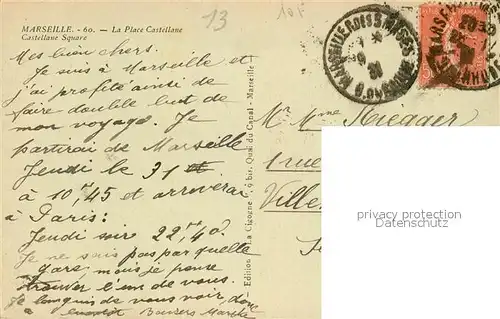 13
MARSEILLE. - 60. - La Place Castellane
Castellane Square
Mes bien chers.
Je suis à Marseille et
j'ai profité ainsi de
faire double but de
mon voyage. Je
partirai de Marseille
Jeudi le 31 et
à 10,45 et arriverai
à Paris:
Jeudi soir 22,40.
Je ne sais pas par quelle
gare mais je pense
trouver l'un de vous.
Je languis de vous voir, donc
Baisers
Edition La Cigogne, 9 bis, Quai du Canal - Marseille
Mr Mme Riegger
1 rue
Ville
privacy protection
Datenschutz